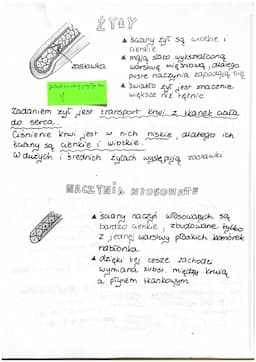 ŻYŁY
▲ ściany żył są wiotkie i
cienkie
▲ mają słabo wykształconą
warstwę mięśniową, dlatego
puste naczynia zapadają się
▲ światło żył jest znacznie
większe niż tętnic
zastawka
Zadaniem żył jest transport krwi z tkanek ciała
do serca.
Ciśnienie krwi jest w nich niskie, dlatego ich
ściany są cienkie i wiotkie.
W dużych i średnich żyłach występują zastawki
NACZYNIA WŁOSOWATE
▲ ściany naczyń włosowatych są
bardzo cienkie, zbudowane tylko
z jednej warstwy płaskich komórek
nabłonka
▲ dzięki tej cesze zachodzi
wymiana subst. między krwią
a płynem tkankowym